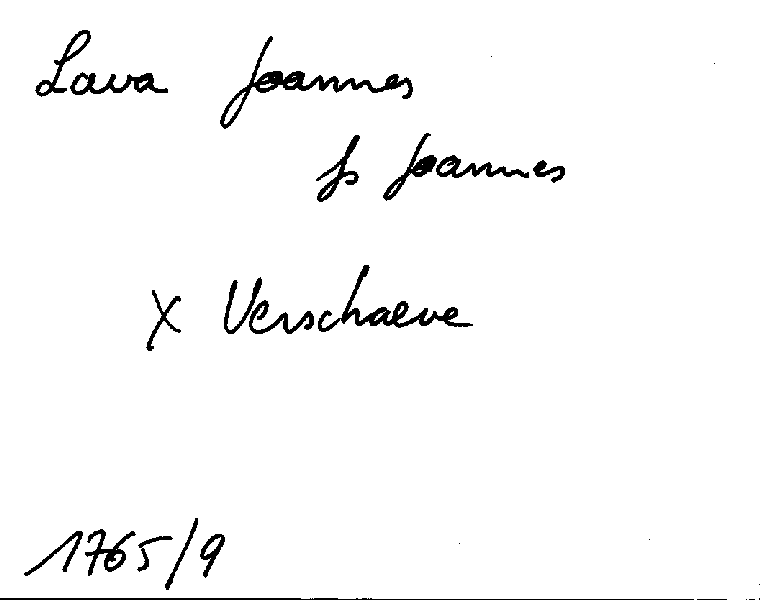 Lava Joannes
fs Joannes
X Verschaeve
1765/9